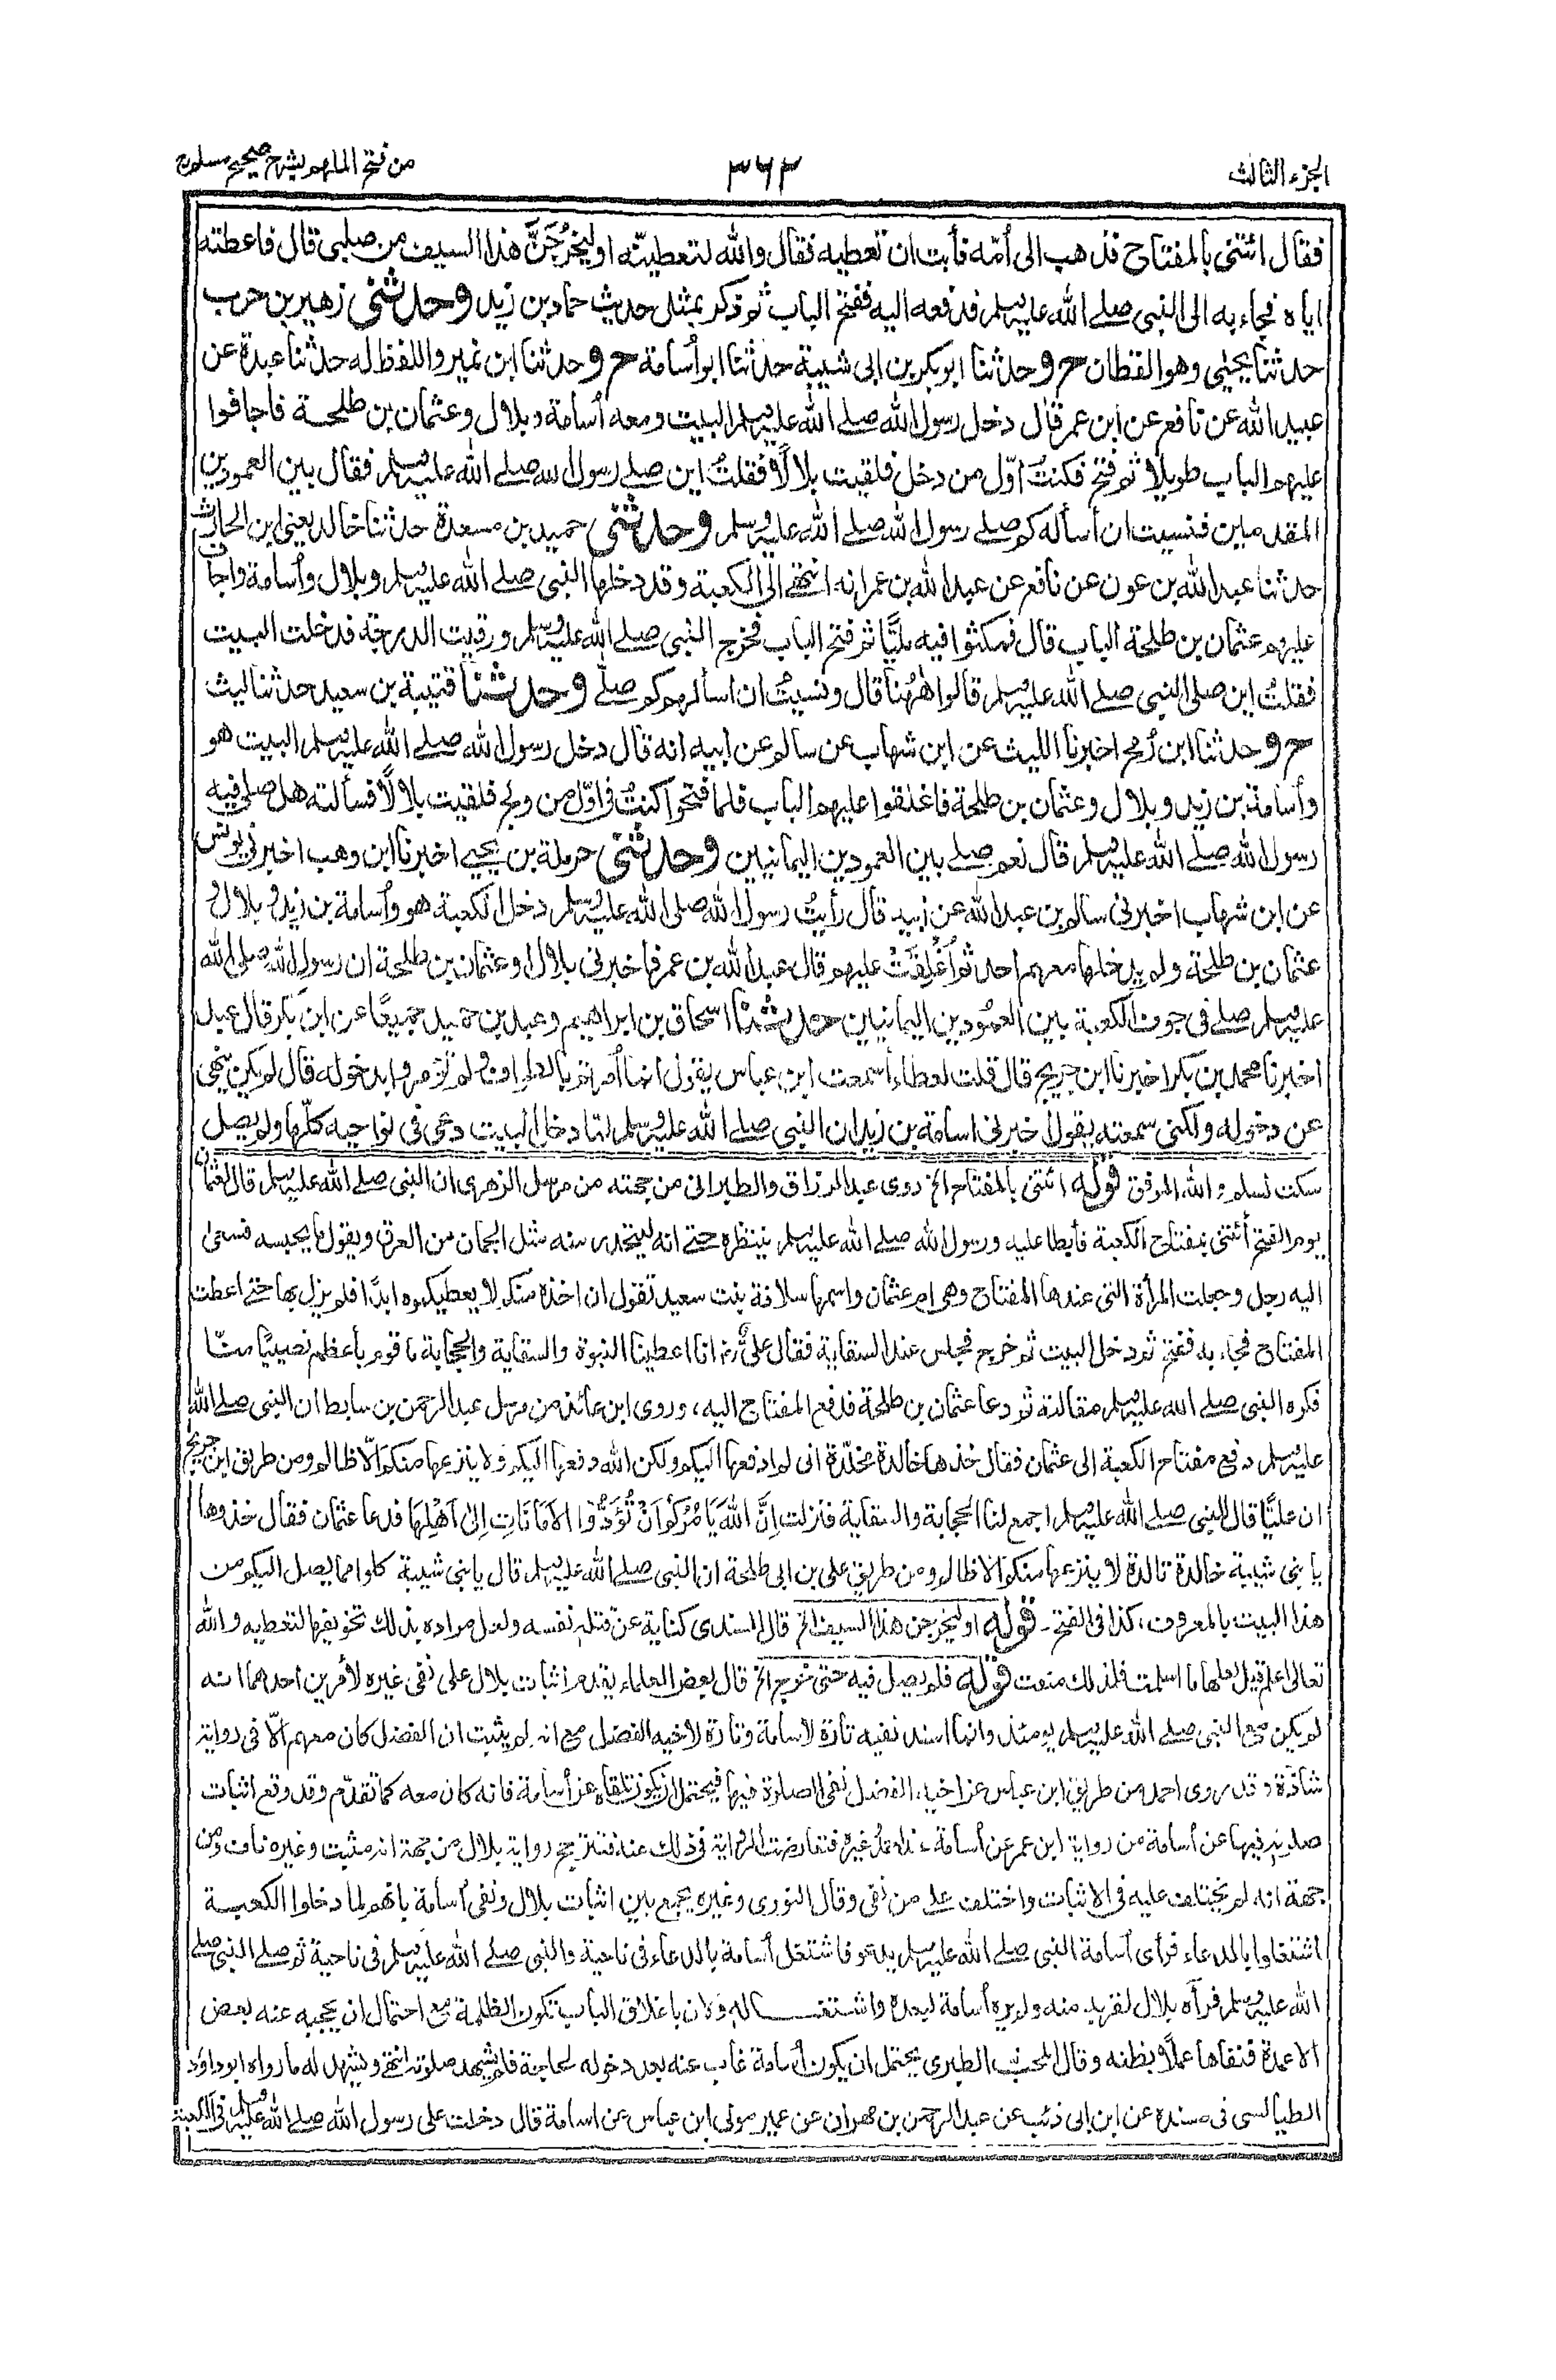 الجزء الثالث
٣٦٢
من فتح الملهم بشرح صحيح مسلم ج
فقال ائتنى بالمفتاح فذهب الى أمّه فأبت ان تعطيه فقال والله لتعطينّه او ليخرُجَنَّ هذا السيف من صلبى قال فاعطته
اياه فجاء به الى النبى صلے الله عليہ وسلم فدفعه اليه ففتح الباب ثم ذكر بمثل حديث حماد بن زيد وحدثنى زهير بن حرب
حدثنا يحيٰي وهو القطان ح وحدثنا ابو بكر بن ابى شيبة حدثنا ابو أسامة ح وحدثنا ابن نمير واللفظ له حدثنا عبدة عن
عبيد الله عن نافع عن ابن عمر قال دخل رسول الله صلے الله عليہ وسلم البيت ومعه أسامة وبلال وعثمان بن طلحة فاجافوا
عليهم الباب طويلًا ثم فتح فكنتُ اوّل من دخل فلقيت بلالًا فقلتُ اين صلے رسول الله صلے الله عليہ وسلم فقال بين العمودين
المقدمين فنسيت ان أسأله كم صلے رسول الله صلے الله عليہ وسلم وحدثنى حميد بن مسعدة حدثنا خالد يعنى ابن الحارث
حدثنا عبد الله بن عون عن نافع عن عبد الله بن عمر انه انتهے الى الكعبة وقد دخلها النبى صلے الله عليہ وسلم وبلال وأسامة واجاف
عليهم عثمان بن طلحة الباب قال فمكثوا فيه مليًّا ثم فتح الباب فخرج النبى صلے الله عليہ وسلم ورقيت الدرجة فدخلت البيت
فقلتُ اين صلى النبى صلے الله عليہ وسلم قالوا هٰهُنا قال ونسيتُ ان اسألهم كم صلّے وحدثنا قتيبة بن سعيد حدثنا ليث
ح وحدثنا ابن رُمح اخبرنا الليث عن ابن شهاب عن سالم عن ابيه انه قال دخل رسول الله صلے الله عليہ وسلم البيت هو
وأسامة بن زيد وبلال وعثمان بن طلحة فاغلقوا عليهم الباب فلما فتحوا كنتُ فى اوّل من ولج فلقيت بلالًا فسألته هل صلى فيه
رسول الله صلے الله عليہ وسلم قال نعم صلے بين العمودين اليمانيين وحدثنى حرملة بن يحيے اخبرنا ابن وهب اخبرنى يونس
عن ابن شهاب اخبرنى سالم بن عبد الله عن ابيه قال رأيتُ رسول الله صلى الله عليہ وسلم دخل الكعبة هو وأسامة بن زيد وبلال و
عثمان بن طلحة ولم يدخلها معهم احد ثم اُغْلِقَتْ عليهم قال عبد الله بن عمر فاخبرنى بلال او عثمان بن طلحة ان رسول الله صلى الله
عليہ وسلم صلے فى جوف الكعبة بين العمُودين اليمانيين حدثنا اسحاق بن ابراهيم وعبد بن حميد جميعًا عن ابن بكر قال عبد
اخبرنا محمد بن بكر اخبرنا ابن جريج قال قلت لعطاء أسمعت ابن عباس يقول انما أمرتم بالطواف ولم تؤمروا بدخوله قال لم يكن ينهى
عن دخوله ولكنى سمعته يقول اخبرنى اسامة بن زيد ان النبى صلے الله عليہ وسلم لمّا دخل البيت دعى فى نواحيه كلّها ولم يصل
سكت تسلم والله الموفق قوله ائتنى بالمفتاح الخ روى عبد الرزاق والطبرانى من جهته من مرسل الزهرى ان النبى صلے الله عليہ وسلم قال لعثمان
يوم الفتح أئتنى بمفتاح الكعبة فأبطا عليه ورسول الله صلے الله عليہ وسلم ينتظره حتے انه ليتحدر منه مثل الجمان من العرق ويقول ما يحبسه فسعى
اليه رجل وجعلت المرأة التى عندها المفتاح وهى ام عثمان واسمها سلافة بنت سعيد تقول ان اخذه منكم لا يعطيكموه ابدًا فلم يزل بها حتے اعطت
المفتاح فجاء به ففتح ثم دخل البيت ثم خرج فجلس عند السقاية فقال علىٌّ انا اعطينا النبوة والسقاية والحجابة ما قوم بأعظم نصيبًا منّا
فكره النبى صلے الله عليہ وسلم مقالته ثم دعا عثمان بن طلحة فدفع المفتاح اليه، وروى ابن عائذ من مرسل عبد الرحمن بن سابط ان النبى صلے الله
عليہ وسلم دفع مفتاح الكعبة الى عثمان فقال خذها خالدة مخلّدة انى لم ادفعها اليكم ولكن الله دفعها اليكم ولا ينزعها منكم الّا ظالم ومن طريق ابن جريج
ان عليًّا قال للنبى صلے الله عليہ وسلم اجمع لنا الحجابة والسقاية فنزلت اِنَّ اللهَ يَأمُرُكُمْ اَنْ تُؤَدُّوا الْاَمَانَاتِ اِلٰى اَهْلِهَا فدعا عثمان فقال خذوها
يا بنى شيبة خالدة تالدة لا ينزعها منكم الا ظالم ومن طريق على بن ابى طلحة ان النبى صلے الله عليہ وسلم قال يا بنى شيبة كلوا مما يصل اليكم من
هذا البيت بالمعروف، كذا فى الفتح۔ قوله او ليخرجن هذا السيف الخ قال السندى كناية عن قتله نفسه ولعل مراده بذلك تخويفها لتعطيه والله
تعالى اعلم قيل لعلها ما اسلمت فلذلك منعت قوله فلم يصل فيه حتى خرج الخ قال بعض العلماء يقدم اثبات بلال على نفى غيره لأمرين احدهما انه
لم يكن مع النبى صلے الله عليہ وسلم يومئذ وانما اسند نفيه تارة لاسامة وتارة لاخيه الفضل مع انه لم يثبت ان الفضل كان معهم الّا فى رواية
شاذّة وقد روى احمد من طريق ابن عباس عن اخيه الفضل نفى الصلوة فيها فيحتمل ان يكون تلقاه عن أسامة فانه كان معه كما تقدّم وقد وقع اثبات
صلوته فيها عن أسامة من رواية ابن عمر عن أسامة عند احمد وغيره فتعارضت الرواية فى ذلك عنه فتترجح رواية بلال من جهة انه مثبت وغيره ناف ومن
جهة انه لم يختلف عليه فى الاثبات واختلف على من نفى وقال النووى وغيره يجمع بين اثبات بلال ونفى أسامة بانهم لما دخلوا الكعبة
اشتغلوا بالدعاء فرأى أسامة النبى صلے الله عليہ وسلم يدعو فاشتغل أسامة بالدعاء فى ناحية والنبى صلے الله عليہ وسلم فى ناحية ثم صلے النبى صلے
الله عليہ وسلم فرآه بلال لقربه منه ولم يره أسامة لبعده واشتغاله ولان باغلاق الباب تكون الظلمة مع احتمال ان يحجبه عنه بعض
الاعمدة فنفاها عملًا بظنه وقال المحب الطبرى يحتمل ان يكون أسامة غاب عنه بعد دخوله لحاجة فلم يشهد صلوته انتهے ويشهد له ما رواه ابو داؤد
الطيالسى فى مسنده عن ابن ابى ذئب عن عبد الرحمن بن مهران عن عمير مولى ابن عباس عن اسامة قال دخلت على رسول الله صلے الله عليہ وسلم فى الكعبة